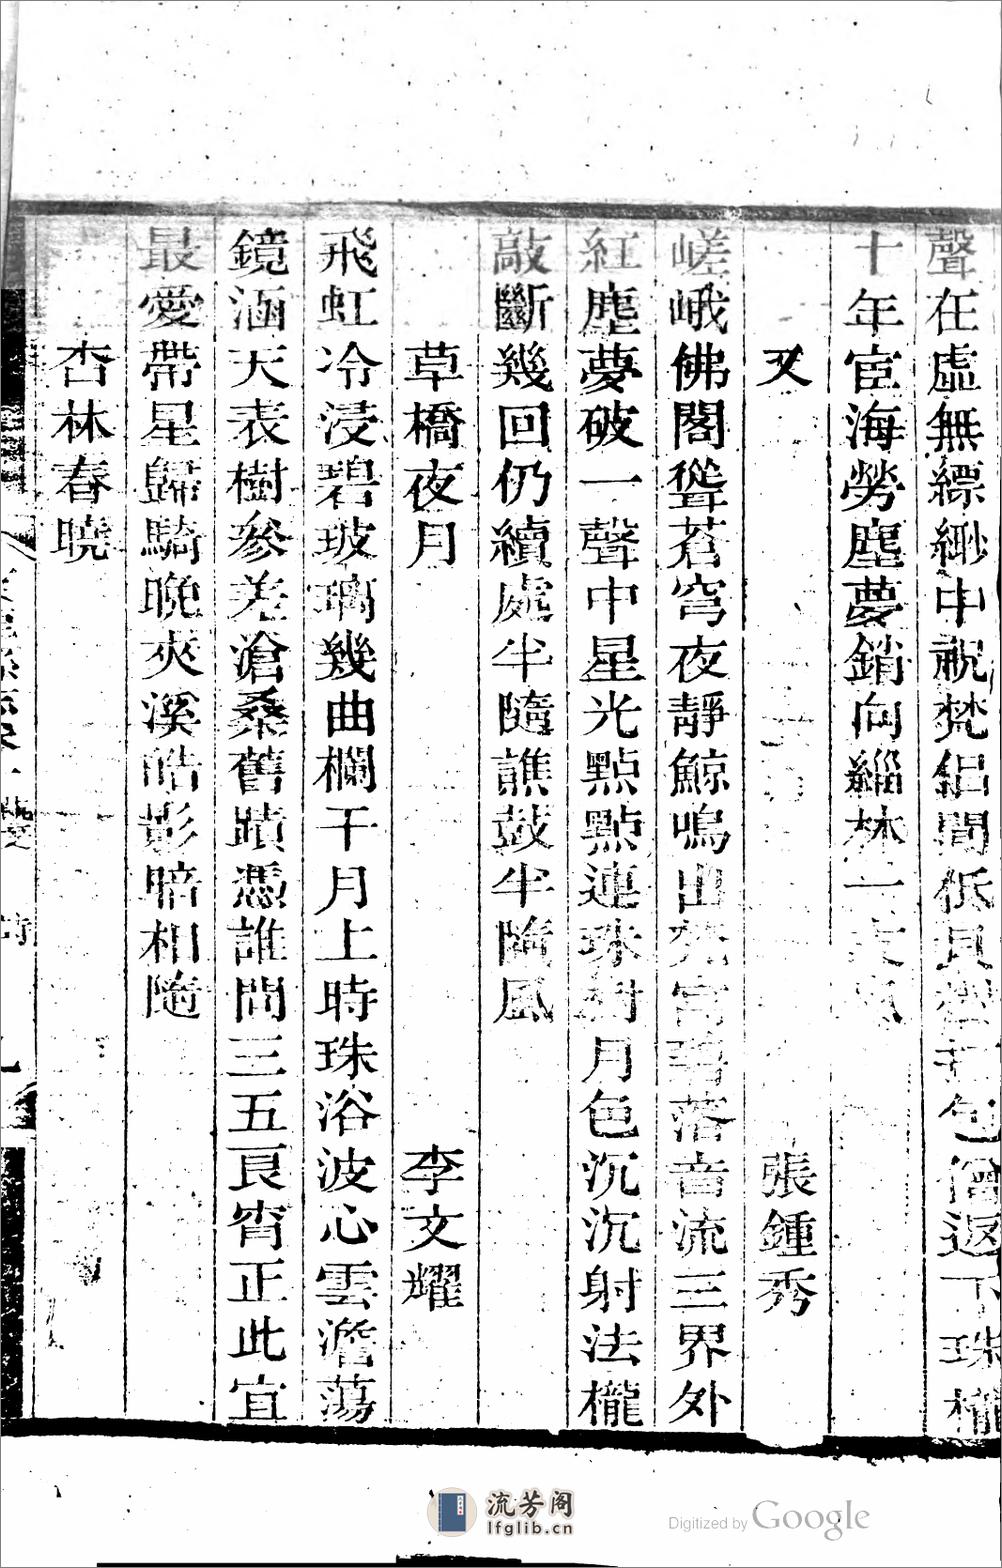 聲在虛無縹緲中視梵侶間低貝　　包僧返下珠櫳
十年宦海勞塵夢銷向緇林一
又　張鍾秀
嵯峨佛閣聳蒼穹夜靜鯨鳴出梵宮　落音流三界外
紅塵夢破一聲中星光點點連珠　月色沉沉射法櫳
敲斷幾回仍續處半隨譙鼓半隨風
草橋夜月　李文耀
飛虹冷浸碧玻璃幾曲欄干月上時珠浴波心雲澹蕩
鏡涵天表樹參差滄桑舊蹟憑誰問三五良宵正此宜
最愛帶星歸騎晚夾溪皓影暗相隨
杏林春曉
流芳阁
lfglib.cn
Digitized by Google